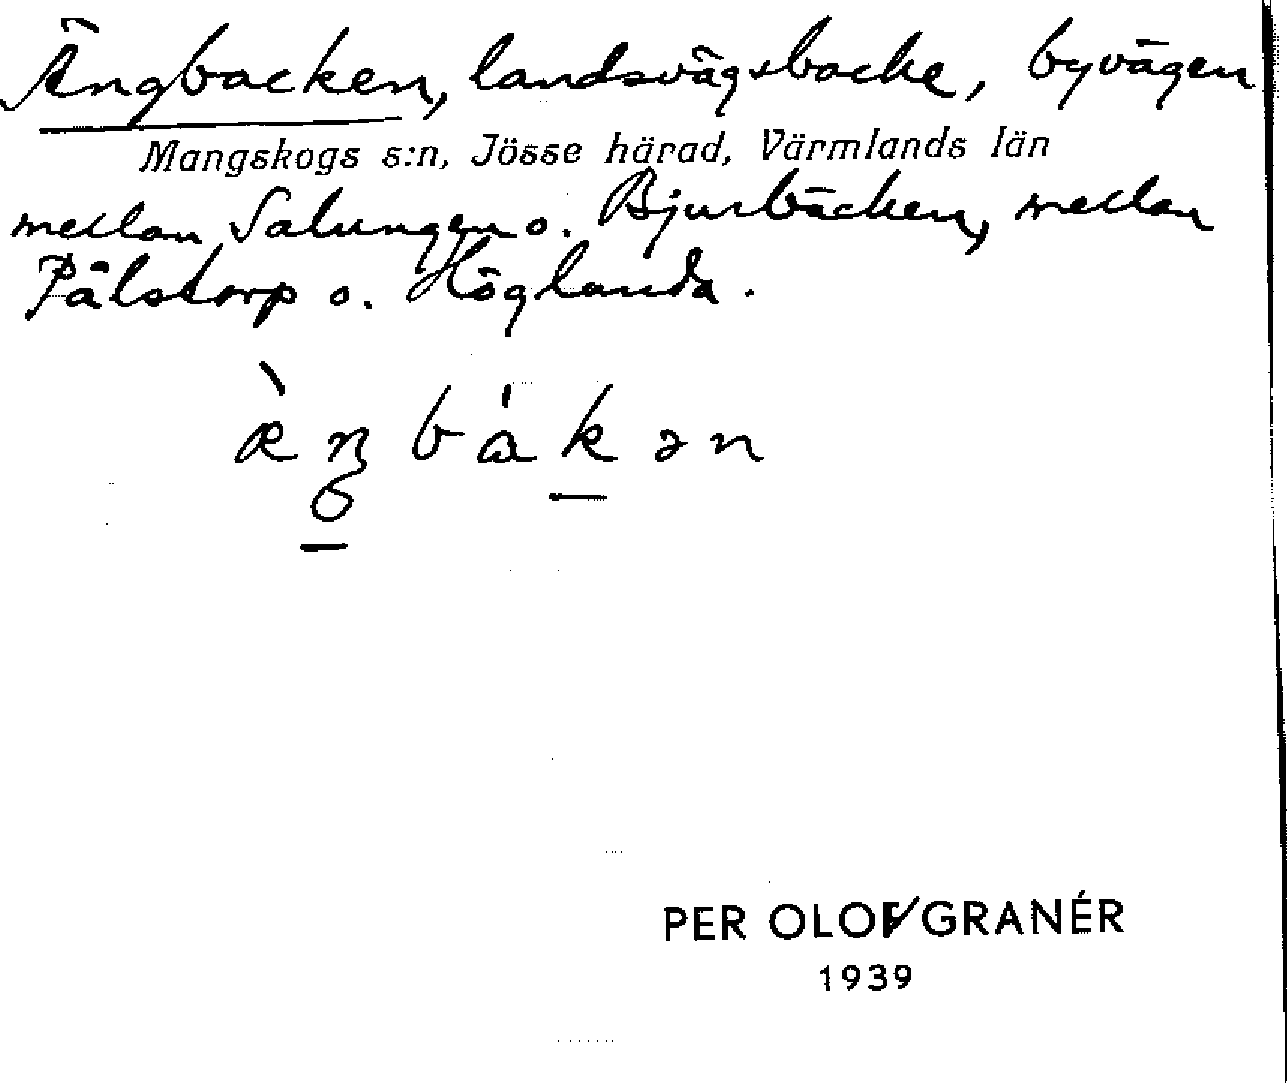 Ängbacken, landsvägsbacke, byvägen
Mangskogs s:n, Jösse härad, Värmlands län
mellan Salungen o. Bjurbäcken, mellan
Pålstorp o. Höglanda.
PER OLOF GRANÉR
1939